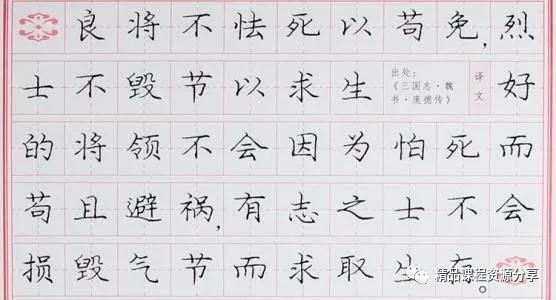 良将不怯死以苟免,烈
士不毁节以求生
出处:
《三国志·魏
书·庞德传》
译
文
好
的将领不会因为怕死而
苟且避祸,有志之士不会
损毁气节而求取生存。
精品课程资源分享